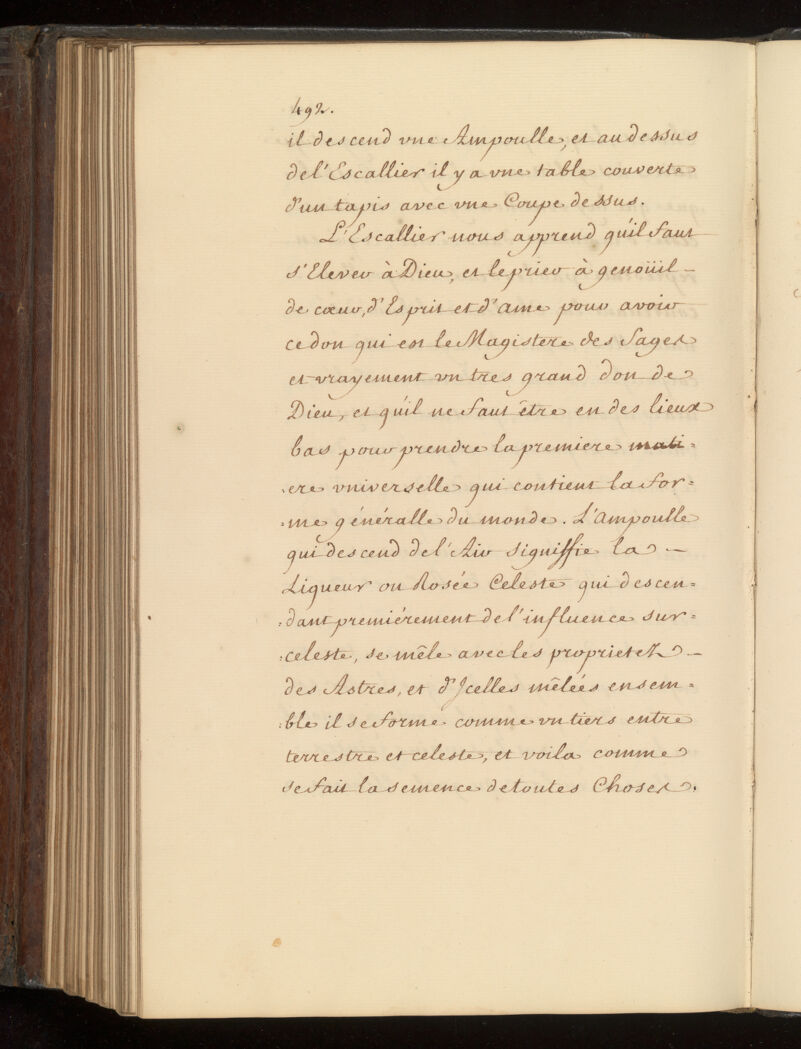 492.
il descend vne Ampoulle, et au dessus
de l'Escallier il y a vne table couverte
d'un tapis avec vne Coupe dessus.
L'Escallier nous apprend qu'il faut
s'Elever à Dieu, et le prier à genoüil –
de cœur, d'Esprit et d'ame pour avoir
ce don qui est le Magistere des Sages
et vrayement vn tres grand don de
Dieu, et qu'il ne faut être en des lieux
bas pour prendre la premiere mati=
=ere vniverselle qui contient la for=
=me généralle du monde. L'Ampoulle
qui descend de l'Air signiffie la –
Liqueur ou Rosée Celeste qui descen=
=dant premiérement de l'influence sur=
=celeste, se mêle avec les proprietez –
des Astres, et d'Jcelles mêlées ensem=
=ble il se forme comme vn tiers entre
terrestre et celeste, et voila comme
se fait la semence de toutes Choses.